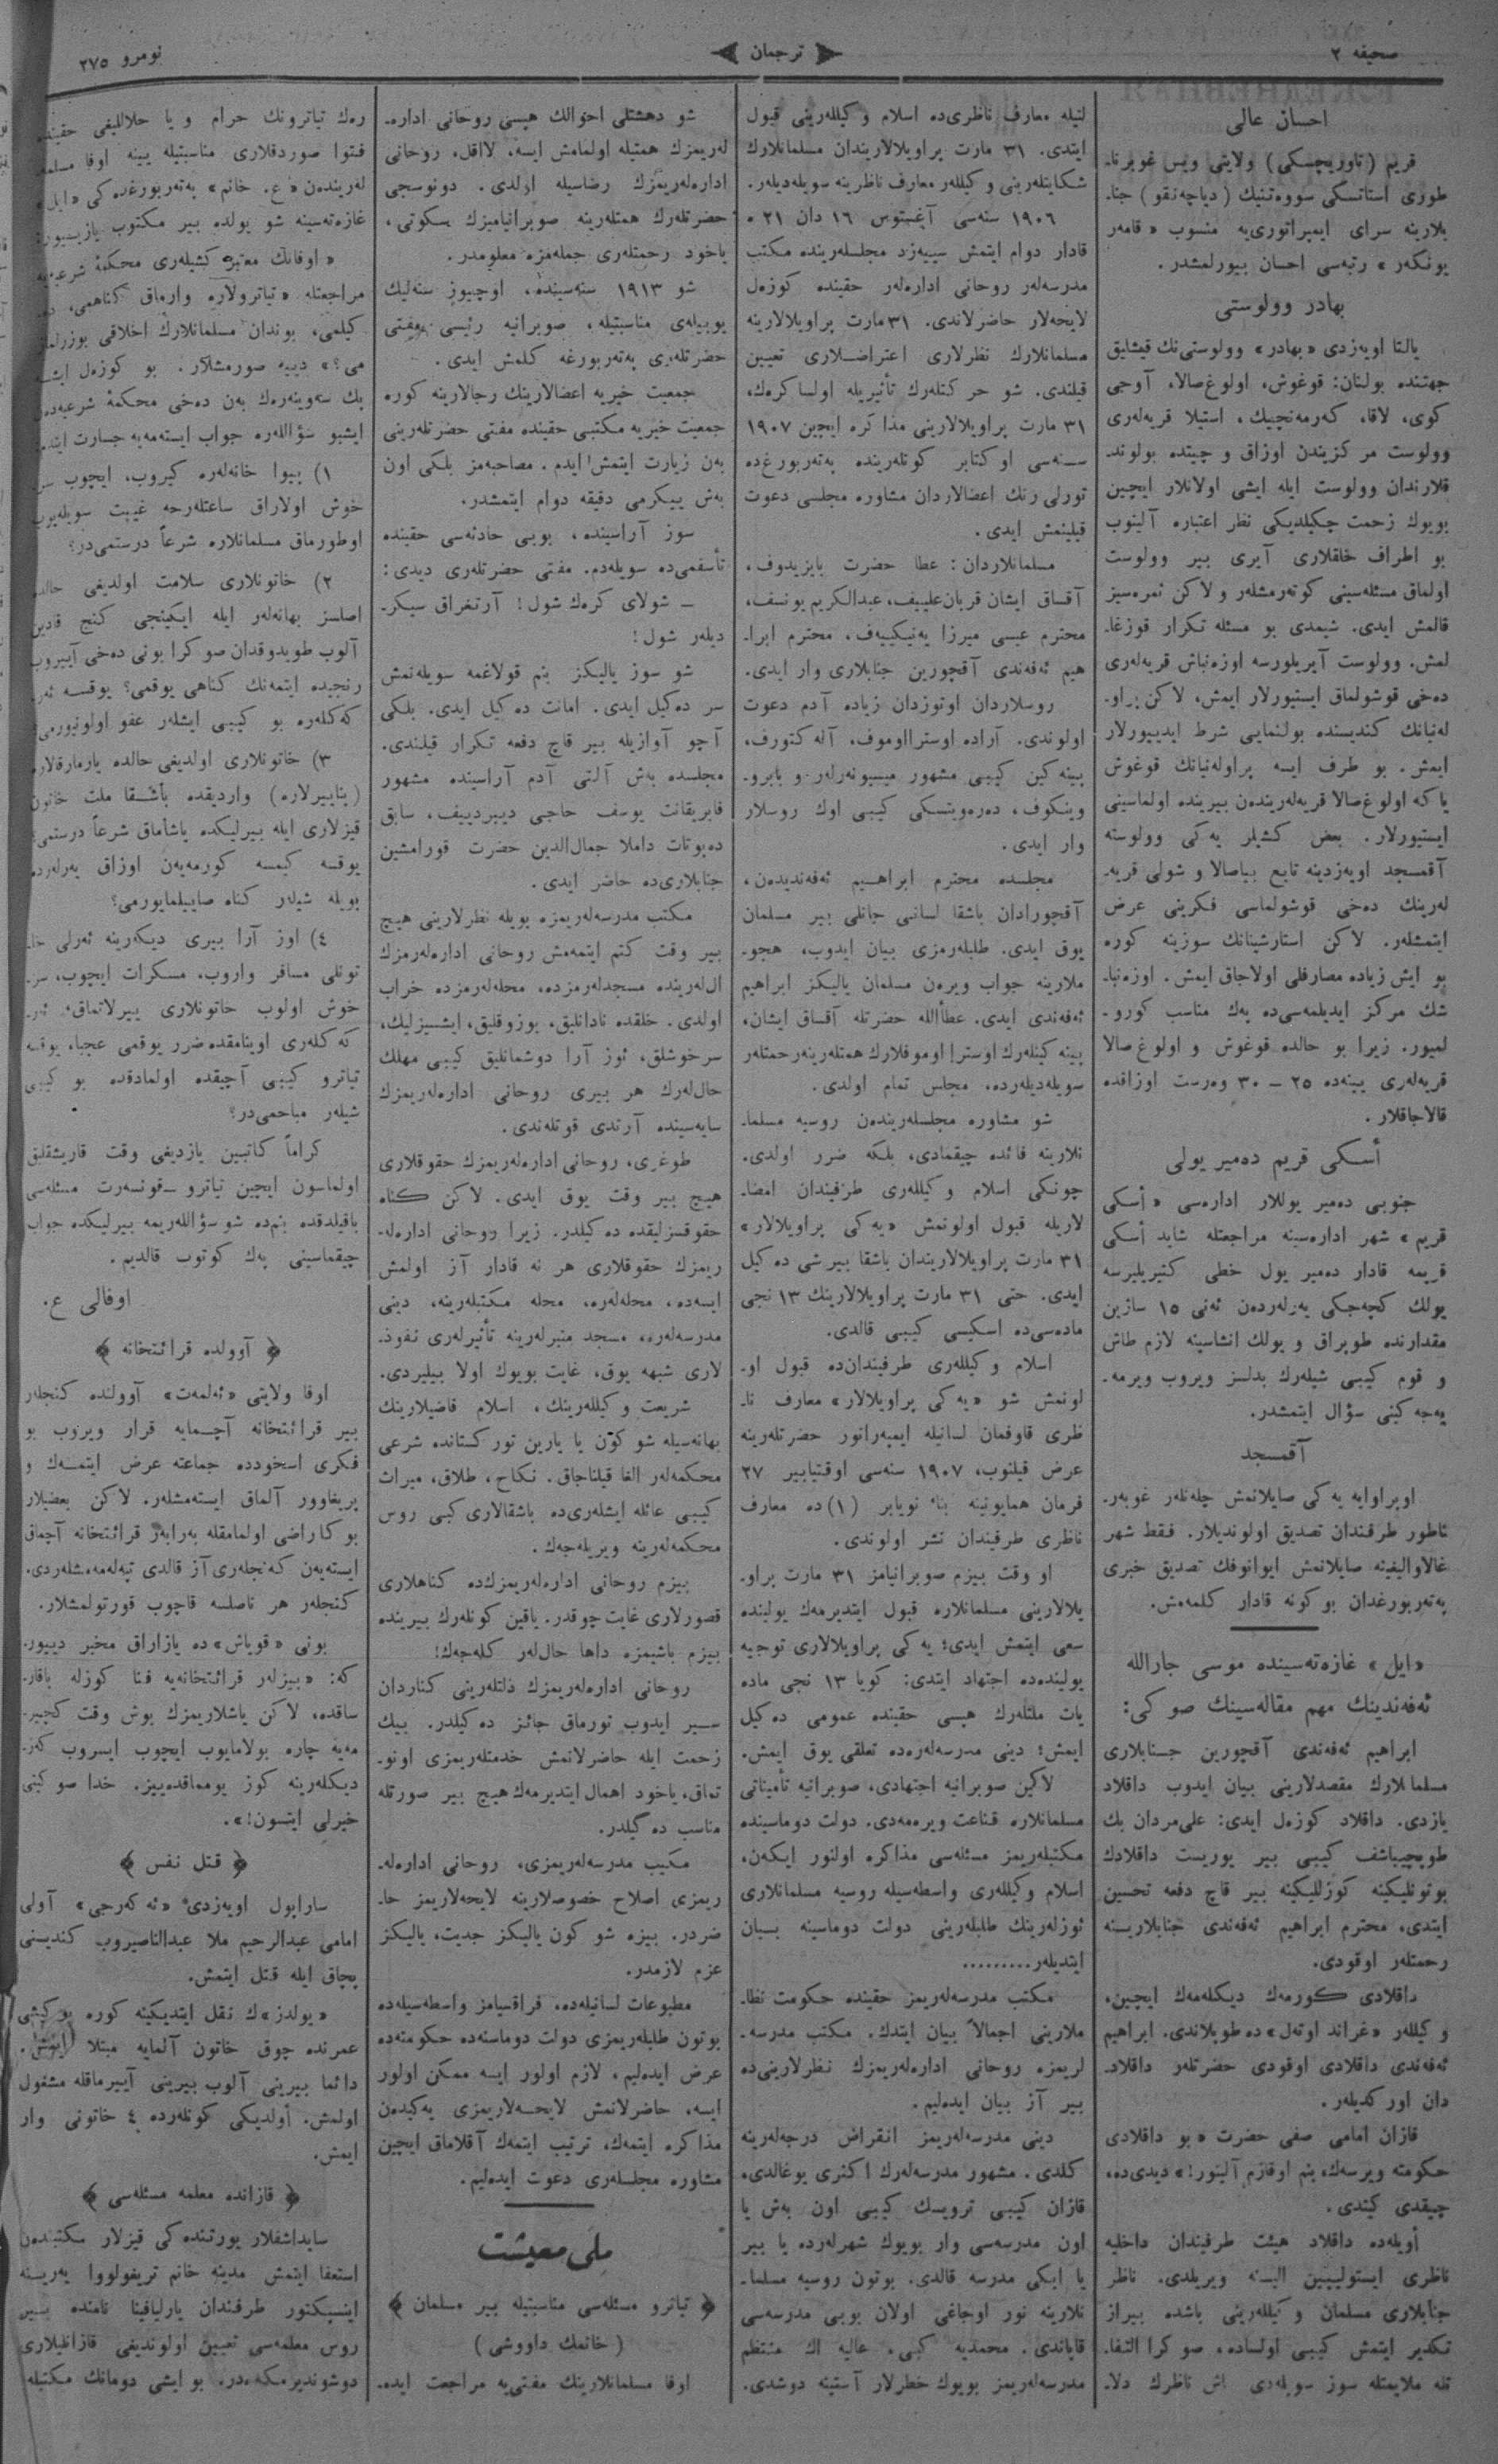 صحیفه ٢
ترجمان
نومرو ٢٧٥
احسان عالی
قریم (تاوریچسکی) ولایتی ویس غوبرنا-
طوری استاتسکی سووەتنیك (دیاچەنقو) جنا-
بلارینه سرای ایمپراتوری‌یه منسوب «قامەر
یونکەر» رتبه‌سی احسان بیورلمشدر.
بهادر وولوستی
یالتا اویەزدی «بهادر» وولوستی‌نك قیشلیق
جهتنده بولنان: قوغوش، اولوغ‌صالا، آوجی
کوی، لاقا، کەرمەنچیك، استیلا قریه‌لەری
وولوست مرکزیندن اوزاق و چیتده بولوند-
قلارندان وولوست ایله ایشی اولانلار ایچین
بویوك زحمت چکیلدیکی نظر اعتباره آلینوب
بو اطراف خلقلاری آیری بیر وولوست
اولماق مسئله‌سینی کوتەرمشلەر و لاکن ثمره‌سیز
قالمش ایدی. شیمدی بو مسئله تکرار قوزغا-
لمش. وولوست آیریلورسه اوزەنباش قریه‌لەری
دەخی قوشولماق ایستیورلار ایمش، لاکن براو-
لەنیانك کندیسنده بولنمایی شرط ایدییورلار
ایمش. بو طرف ایسه پراولەنیانك قوغوش
یاکه اولوغ‌صالا قریه‌لەریندەن بیرینده اولماسینی
ایستیورلار. بعض کشیلر یەکی وولوسته
آقمسجد اویەزدینه تابع بیاصالا و شولی قریه-
لەرینك دەخی قوشولماسی فکرینی عرض
ایتمشلەر. لاکن استارشینانك سوزینه کوره
بو ایش زیاده مصارفلی اولاجاق ایمش. اوزەنبا-
شك مرکز ایدیلمه‌سی‌ده یەك مناسب کورو-
لمیور. زیرا بو حالده قوغوش و اولوغ صالا
قریه‌لەری یینه‌ده ٢٥ – ٣٠ وەرست اوزاقده
قالاجاقلار.
أسکی قریم دەمیر یولی
جنوبی دەمیر یوللار اداره‌سی «أسکی
قریم» شهر اداره‌سینه مراجعتله شاید أسکی
قریمه قادار دەمیر یول خطی کتیریلیرسه
یولك کچه‌جکی یەرلەردەن ئەنی ١٥ سازین
مقدارنده طوپراق و یولك انشاسینه لازم طاش
و قوم کیبی شیلەرك بدلسز ویروب ویرمه-
یەجەکینی سؤال ایتمشدر.
آقمسجد
اوپراوایه یەکی صایلانمش چلەنلەر غوبەر-
ناطور طرفندان تصدیق اولوندیلار. فقط شهر
غالاوالیغینه صایلانمش ایوانوفك تصدیق خبری
پەتەربورغدان بو کونه قادار کلمەمش.
«ایل» غازەتەسینده موسی جارالله
ئەفەندینك مهم مقاله‌سینك صوکی:
ابراهیم ئەفەندی آقچورین جنابلاری
مسلمانلارك مقصدلارینی بیان ایدوب داقلاد
یازدی. داقلاد کوزەل ایدی: علی‌مردان بك
طوپچیباشف کیبی بیر یوریست داقلادك
بوتونلیکینه کوزللیکینه بیر قاچ دفعه تحسین
ایتدی، محترم ابراهیم ئەفەندی جنابلارینه
رحمتلەر اوقودی.
داقلادی کورمەك دیکلەمەك ایچین،
وکیللەر «غراند اوتەل»ده طوپلاندی. ابراهیم
ئەفەندی داقلادی اوقودی حضرتلەر داقلاد-
دان اورکدیلەر.
قازان امامی صفی حضرت «بو داقلادی
حکومته ویرسەك، بنم اوقازم آلینور!» دیدی‌ده،
چیقدی کیتدی.
أویله‌ده داقلاد هیئت طرفیندان داخلیه
ناظری ایستولیپین الینه ویریلدی. ناظر
جنابلاری مسلمان وکیللەرینی باشده بیراز
تکدیر ایتمش کیبی اولساده، صوکرا التفا-
تله ملایمتله سوز سویلەدی اش ناظرك دلا-
لتیله معارف ناظری‌ده اسلام وکیللەرینی قبول
ایتدی. ٣١ مارت پراویلالاریندان مسلمانلارك
شکایتلەرینی وکیللەر معارف ناظرینه سویلەدیلەر.
١٩٠٦ سنه‌سی آغستوس ١٦ دان ٢١ ه
قادار دوام ایتمش سییەزد مجلسلەرینده مکتب
مدرسه‌لەر روحانی اداره‌لەر حقینده کوزەل
لایحه‌لار حاضرلاندی. ٣١ مارت پراویلالارینه
مسلمانلارك نظرلاری اعتراضلاری تعیین
قیلندی. شو حرکتلەرك تأثیریله اولسا کرەك،
٣١ مارت پراویلالارینی مذاکره ایچین ١٩٠٧
سنه‌سی اوکتابر کونلەرینده پەتەربورغ‌ده
تورلی رنك اعضالاردان مشاوره مجلسی دعوت
قیلینمش ایدی.
مسلمانلاردان: عطا حضرت بایزیدوف،
آقساق ایشان قربان‌علییف، عبدالکریم یونسف،
محترم عیسی میرزا یەنیکییەف، محترم ابرا-
هیم ئەفەندی آقچورین جنابلاری وار ایدی.
روسلاردان اوتوزدان زیاده آدم دعوت
اولوندی. آراده اوستراوموف، آلەکتورف،
یینه‌کین کیبی مشهور میسیونەرلەر و بابرو-
وینکوف، دەرەویتسکی کیبی اوك روسلار
وار ایدی.
مجلسده محترم ابراهیم ئەفەندیدەن،
آقچورادان باشقا لسانی جانلی بیر مسلمان
یوق ایدی. طلبلەرمزی بیان ایدوب، هجو-
ملارینه جواب ویرەن مسلمان یالیکز ابراهیم
ئەفەندی ایدی. عطأالله حضرتله آقساق ایشان،
یینه کینلەرك اوستراوموفلارك همتلەرینه‌رحمتلەر
سویلەدیلەرده، مجلس تمام اولدی.
شو مشاوره مجلسلەریندەن روسیه مسلما-
نلارینه فائده چیقمادی، بلکه ضرر اولدی.
چونکی اسلام وکیللەری طرفیندان امضا-
لاریله قبول اولونمش «یەکی پراویلالار»
٣١ مارت پراویلالاریندان باشقا بیر شی دەکیل
ایدی. حتی ٣١ مارت پراویلالارینك ١٣ نجی
ماده‌سی‌ده اسکیسی کیبی قالدی.
اسلام وکیللەری طرفیندان‌ده قبول او-
لونمش شو «یەکی پراویلالار» معارف نا-
ظری قاوفمان لسانیله ایمپەراتور حضرتلەرینه
عرض قیلنوب، ١٩٠٧ سنه‌سی اوقتیابیر ٢٧
فرمان همایونینه بناء نویابر (١)ده معارف
ناظری طرفیندان نشر اولوندی.
او وقت بیزم صوبرانیامز ٣١ مارت پراو-
یلالارینی مسلمانلاره قبول ایتدیرمەك یولینده
سعی ایتمش ایدی؛ یەکی پراویلالاری توجیه
یولینده‌ده اجتهاد ایتدی: کویا ١٣ نجی ماده
یات ملتلەرك هیسی حقینده عمومی دەکیل
ایمش؛ دینی مدرسه‌لەرەده تعلقی یوق ایمش.
لاکین صوبرانیه اجتهادی، صوبرانیه تأمیناتی
مسلمانلاره قناعت ویرەمەدی. دولت دوماسینده
مکتبلەریمز مسئله‌سی مذاکره اولنور ایکەن،
اسلام وکیللەری واسطه‌سیله روسیه مسلمانلاری
ئوزلەرینك طلبلەرینی دولت دوماسینه بیان
ایتدیلەر.........
مکتب مدرسه‌لەریمز حقینده حکومت نظا-
ملارینی اجمالاً بیان ایتدك. مکتب مدرسه-
لریمزه روحانی اداره‌لەریمزك نظرلارینی‌ده
بیر آز بیان ایدەلیم.
دینی مدرسه‌لەریمز انقراض درجه‌لەرینه
کلدی. مشهور مدرسه‌لەرك اکثری یوغالدی،
قازان کیبی ترویسك کیبی اون بەش یا
اون مدرسه‌سی وار بویوك شهرلەرده یا بیر
یا ایکی مدرسه قالدی. بوتون روسیه مسلما-
نلارینه نور اوجاغی اولان بوبی مدرسه‌سی
قاپاندی. محمدیه کبی، عالیه اك منتظم
مدرسه‌لەریمز بویوك خطرلار آستینه دوشدی.
شو دهشتلی احوالك هیسی روحانی اداره-
لەریمزك همتیله اولمامش ایسه، لااقل، روحانی
اداره‌لەریمزك رضاسیله اولدی. دونوسجی
حضرتلەرك همتلەرینه صوبرانیامیزك سکوتی،
یاخود رحمتلەری جمله‌مزه معلومدر.
شو ١٩١٣ سنه‌سینده، اوچیوز سنه‌لیك
یوبیله‌ی مناسبتیله، صوبرانیه رئیسی مفتی
حضرتلەری پەتەربورغه کلمش ایدی.
جمعیت خیریه اعضالارینك رجالارینه کوره
جمعیت خیریه مکتبی حقینده مفتی حضرتلەرینی
بەن زیارت ایتمش ایدم. مصاحبه‌مز بلکی اون
بەش ییکرمی دقیقه دوام ایتمشدر.
سوز آراسینده، بوبی حادثه‌سی حقینده
تأسفمی‌ده سویلەدم. مفتی حضرتلەری دیدی:
– شولای کرەك شول! آرتغراق سیکر-
دیلەر شول!
شو سوز یالیکز بنم قولاغمه سویلەنمش
سر دەکیل ایدی. امانت دەکیل ایدی. بلکی
آچو آوازیله بیر قاچ دفعه تکرار قیلندی.
مجلسده بەش آلتی آدم آراسینده مشهور
فابریقانت یوسف حاجی دیبردییف، سابق
دەپوتات داملا جمال‌الدین حضرت قورامشین
جنابلاری‌ده حاضر ایدی.
مکتب مدرسه‌لەریمزه بویله نظرلارینی هیچ
بیر وقت کتم ایتمەمش روحانی اداره‌لەرمزك
ال‌لەرینده مسجدلەرمزده، محله‌لەرمزده خراب
اولدی. خلقده نادانلیق، بوزوقلیق، ایشسیزلیك،
سرخوشلق، ئوز آرا دوشمانلیق کیبی مهلك
حال‌لەرك هر بیری روحانی اداره‌لەریمزك
سایه‌سینده آرتدی قوتلەندی.
طوغری، روحانی اداره‌لەریمزك حقوقلاری
هیچ بیر وقت یوق ایدی. لاکن کناه
حقوقسزلیقده دەکیلدر. زیرا روحانی اداره‌لە-
ریمزك حقوقلاری هر نه قادار آز اولمش
ایسەده، محله‌لەره، محله مکتبلەرینه، دینی
مدرسه‌لەره، مسجد منبرلەرینه تأثیرلەری نفوذ-
لاری شبهه یوق، غایت بویوك اولا بیلیردی.
شریعت وکیللەرینك، اسلام قاضیلارینك
بهانه‌سیله شو کون یا یارین تورکستانده شرعی
محکمه‌لەر الغا قیلناجاق. نکاح، طلاق، میراث
کیبی عائله ایشلەری‌ده باشقالاری کبی روس
محکمه‌لەرینه ویریلەجەك.
بیزم روحانی اداره‌لەریمزك‌ده کناهلاری
قصورلاری غایت چوقدر. یاقین کونلەرك بیرینده
بیزم باشیمزه داها حال‌لەر کلەجەك!
روحانی اداره‌لەریمزك ذلتلەرینی کناردان
سیر ایدوب تورماق جائز دەکیلدر. بیك
زحمت ایله حاضرلانمش خدمتلەریمزی اونو-
تماق، یاخود اهمال ایتدیرمەك هیچ بیر صورتله
مناسب دەگیلدر.
مکتب مدرسه‌لەریمزی، روحانی اداره‌لە-
ریمزی اصلاح خصوصلارینه لایحه‌لاریمز حا-
ضردر. بیزه شو کون یالیکز جدیت، یالیکز
عزم لازمدر.
مطبوعات لسانیله‌ده، فراقسیامز واسطه‌سیله‌ده
بوتون طلبلەریمزی دولت دوماسنده حکومته‌ده
عرض ایدەلیم، لازم اولور ایسه ممکن اولور
ایسه، حاضرلانمش لایحه‌لاریمزی یەکیدەن
مذاکره ایتمەك، ترتیب ایتمەك آقلاماق ایچین
مشاوره مجلسلەری دعوت ایدەلیم.
ملی معیشت
﴿ تیاترو مسئله‌سی مناسبتیله بیر مسلمان ﴾
(خانمك داووشی)
اوفا مسلمانلارینك مفتی‌یه مراجعت ایده-
رەك تیاترونك حرام و یا حلاللیغی حقینده
فتوا صوردقلاری مناسبتیله یینه اوفا مسلمه
لەریندەن «ع. خانم» پەتەربورغدەکی «ایل»
غازەتەسینه شو یولده بیر مکتوب یازییور:
«اوفانك معتبر کشیلەری محکمهٔ شرعیه‌یه
مراجعتله «تیاترولاره وارماق کناهمی،
کیلمی، بوندان مسلمانلارك اخلاقی بوزرلماز
می؟» دییه صورمشلار. بو کوزەل ایشه
بك سەوینەرەك بەن دەخی محکمهٔ شرعیه‌دەن
ایشبو سؤاللەره جواب ایستەمەیه جسارت ایتدم
١) پیوا خانه‌لەره کیروب، ایچوب سر
خوش اولاراق ساعتلەرجه غیبت سویلەیوب
اوطورماق مسلمانلاره شرعاً درستمی‌در؟
٢) خاتونلاری سلامت اولدیغی حالده
اصلسز بهانه‌لەر ایله ایکینجی کنج قادین
آلوب طویدوقدان صوکرا بونی دەخی آییروب
رنجیده ایتمەنك کناهی یوقمی؟ یوقسه ئەر
کەکلەره بو کیبی ایشلەر عفو اولونیورمی؟
٣) خاتونلاری اولدیغی حالده یارمارقالاره
(پنایبرلاره) واردیقده باشقا ملت خاتون
قیزلاری ایله بیرلیکده یاشاماق شرعاً درستمی؟
یوقسه کیمسه کورمەیەن اوزاق یەرلەرده
بویله شیلەر کناه صاییلمایورمی؟
٤) اوز آرا بیری دیکەرینه ئەرلی خا-
تونلی مسافر واروب، مسکرات ایچوب، سر-
خوش اولوب خاتونلاری بیرلاتماق، ئەر-
کەکلەری اوینامقده ضرر یوقمی عجبا، یوقسه
تیاترو کیبی آچیقده اولمادقده بو کیبی
شیلەر مباحمی‌در؟
کراماً کاتبین یازدیغی وقت قاریشقلیق
اولماسون ایچین تیاترو – قونسەرت مسئله‌سی
باقیلدقده بنم‌ده شو سؤاللەریمه بیرلیکده جواب
چیقماسینی یەك کوتوب قالدیم.
اوفالی ع.
﴿ آوولده قرائتخانه ﴾
اوفا ولایتی «ئەلمەت» آوولنده کنجلەر
بیر قرائتخانه آچمایه قرار ویروب بو
فکری اسخودده جماعته عرض ایتمەك و
پریغاوور آلماق ایستەمشلەر. لاکن بعضیلار
بوکا راضی اولمامقله بەرابەر قرائتخانه آچماق
ایستەیەن کەنجلەری آز قالدی تپەلەمەمشلەردی.
کنجلەر هر ناصلسه قاچوب قورتولمشلار.
بونی «قویاش»ده یازاراق مخبر دییور-
که: «بیزلەر قرائتخانه‌یه فنا کوزله باقار-
ساقده، لاکن یاشلاریمزك بوش وقت کچیر-
مەیه چاره بولامایوب ایچوب ایسروب کەز-
دیکلەرینه کوز یومماقدەییز. خدا صوکینی
خیرلی ایتسون!».
﴿ قتل نفس ﴾
ساراپول اویەزدی «ئەکەرجی» آولی
امامی عبدالرحیم ملا عبدالناصیروب کندیسنی
پچاق ایله قتل ایتمش.
«یولدز»ك نقل ایتدیکینه کوره بو کیشی
عمرنده چوق خاتون آلمایه مبتلا ایمش.
دائما بیرینی آلوب بیرینی آییرماقله مشغول
اولمش. أولدیکی کونلەرده ٤ خاتونی وار
ایمش.
﴿ قازانده معلمه مسئله‌سی ﴾
سایداشفلار یورتنده‌کی قیزلار مکتبندەن
استعفا ایتمش مدینه خانم تریفولووا یەرینه
اینسپکتور طرفندان یارلیافینا نامنده بیر
روس معلمه‌سی تعیین اولوندیغی قازانلیلاری
دوشوندیرمکه‌در. بو ایشی دومانك مکتبلە